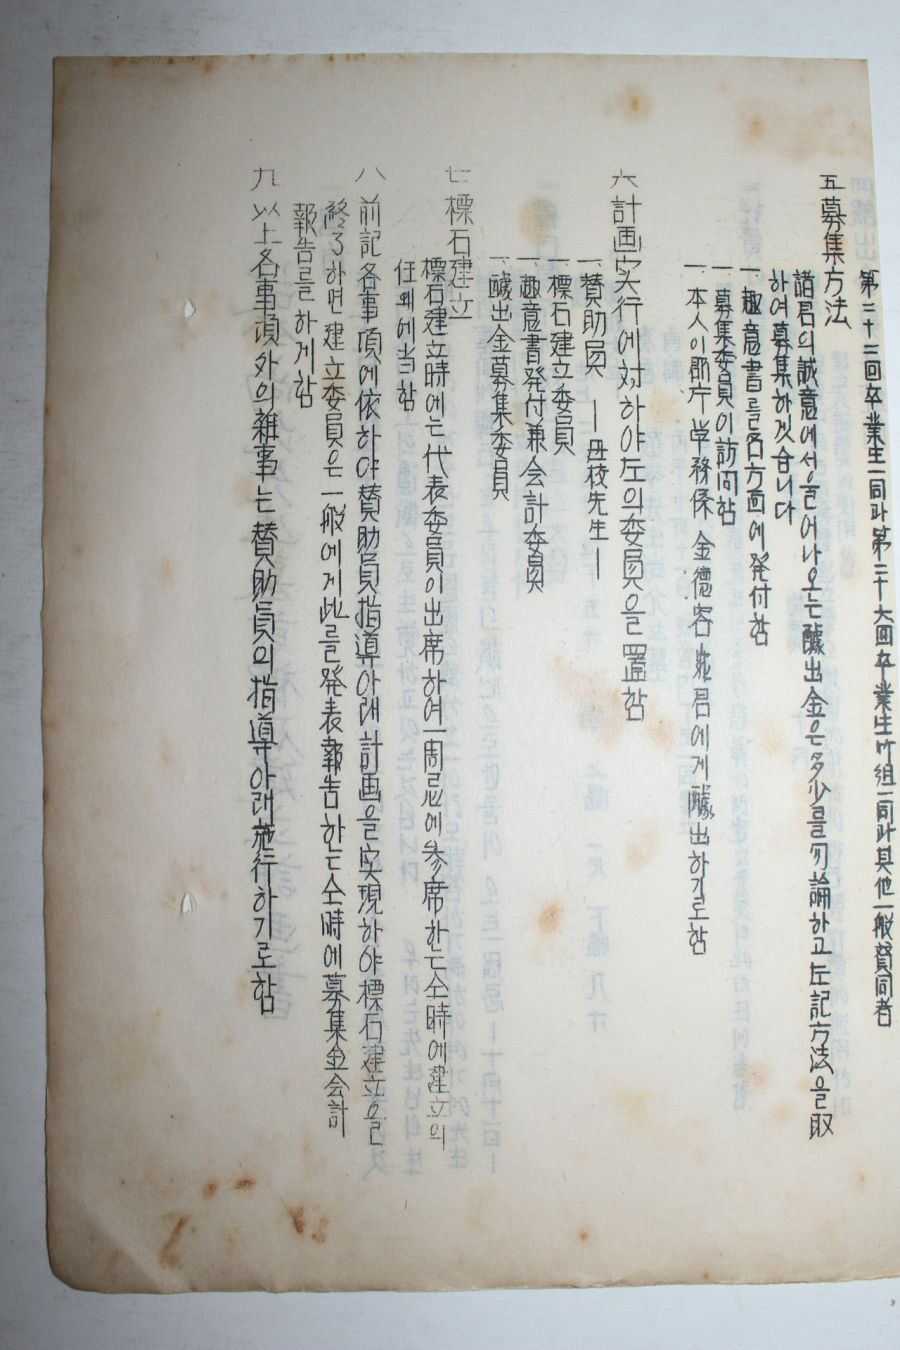 第二十三回卒業生一同과 第二十六回卒業生竹組一同과 其他一般賛同者
五 募集方法
諸君의 誠意에서 울어나오는 醵出金은 多少를 勿論하고 左記方法을 取
하여 募集하겠습니다
一. 趣意書를 各方面에 発付함
一 募集委員이 訪問함
一. 本人이 郡庁 学務係 金徳容 君에게 醵出하기로함
六 計画実行에 対하야 左의 委員을 置함
一. 賛助員 ― 母校先生 ―
一 標石建立委員
一 趣意書発付兼会計委員
一. 醵出金募集委員
七 標石建立
標石建立時에는 代表委員이 出席하여 一周忌에 参席하는 仝時에 建立의
任에 当함
八 前記各事項에 依하야 賛助員指導아래 計画을 実現하야 標石建立을
終了하면 建立委員은 一般에게 此를 発表報告하는 仝時에 募集金会計
報告를 하게함
九 以上各事項外의 雑事는 賛助員의 指導아래 施行하기로함